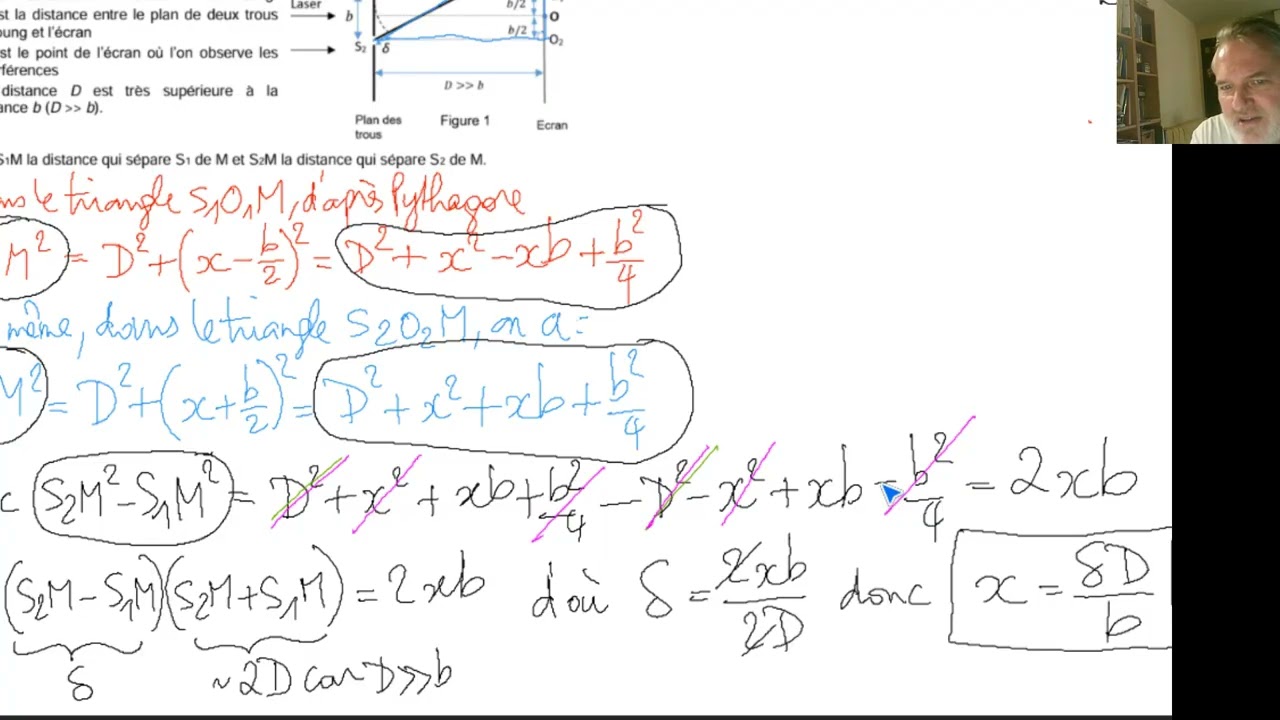 st la distance entre le plan de deux trous
oung et l'écran
st le point de l'écran où l'on observe les
férences
distance D est très supérieure à la
ance b (D >> b).
Laser
b
S₂
δ
b/2
O
b/2
O₂
D >> b
Plan des trous
Figure 1
Ecran
S₁M la distance qui sépare S₁ de M et S₂M la distance qui sépare S₂ de M.
ns le triangle S₁O₁M, d'après Pythagore
M² = D² + (x - b/2)² = D² + x² - xb + b²/4
même, dans le triangle S₂O₂M, on a =
M² = D² + (x + b/2)² = D² + x² + xb + b²/4
c S₂M² - S₁M² = D² + x² + xb + b²/4 - D² - x² + xb - b²/4 = 2xb
(S₂M - S₁M)(S₂M + S₁M) = 2xb d'où δ = 2xb/2D donc x = δD/b
δ ~2D car D>>b